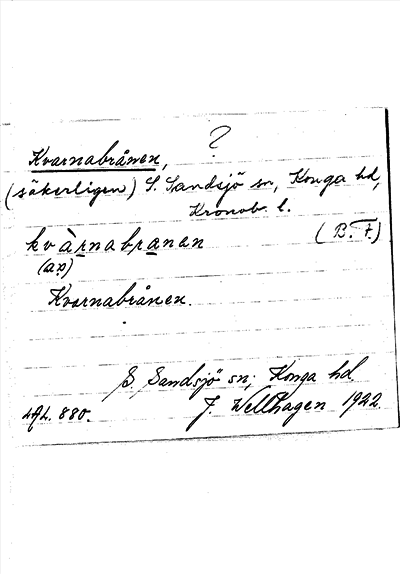 ?
Kvarnabrånen,
(säkerligen) S. Sandsjö sn, Konga hd,
Kronob. l.
kvàrnabranan (B. F.)
(ax)
Kvarnabrånen.
S. Sandsjö sn; Konga hd.
880. J. Wellhagen 1922.